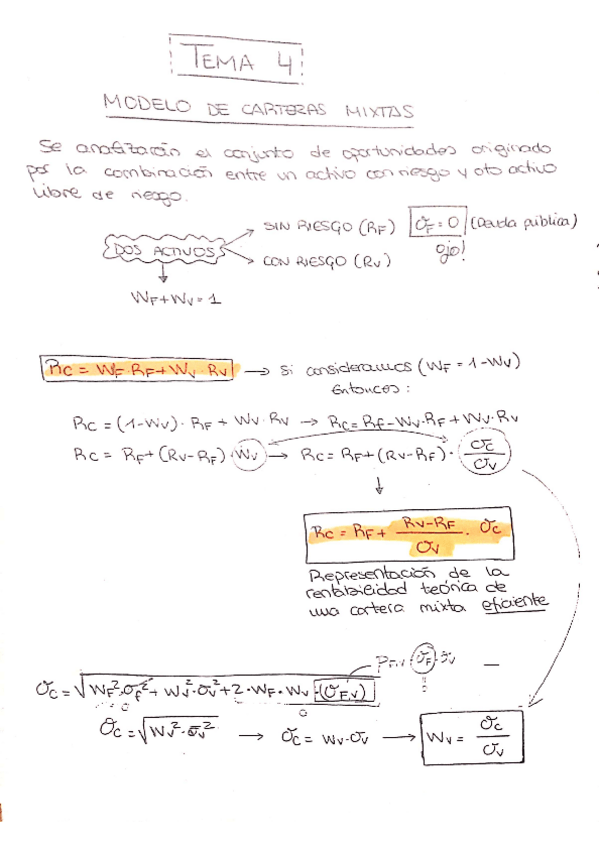 TEMA 4
MODELO DE CARTERAS MIXTAS
Se analizarán el conjunto de oportunidades originado
por la combinación entre un activo con riesgo y oto activo
libre de riesgo.
DOS ACTIVOS
SIN RIESGO (RF) σF = 0 (Deuda pública)
ojo!
CON RIESGO (Rv)
WF + Wv = 1
Rc = WF · RF + Wv · Rv → Si consideramos (WF = 1 - Wv)
Entonces:
Rc = (1-Wv) · RF + Wv · Rv → Rc = Rf - Wv · RF + Wv · Rv
Rc = RF + (Rv-RF) · Wv → Rc = RF + (Rv-RF) · σc/σv
Rc = RF + (Rv-RF)/σv · σc
Representación de la
rentabilidad teórica de
una cartera mixta eficiente
σc = √(WF² · σf² + Wv² · σv² + 2 · WF · Wv · (σF,v))
σF · σv
0 0
σc = √(Wv² · σv²) → σc = Wv · σv → Wv = σc/σv